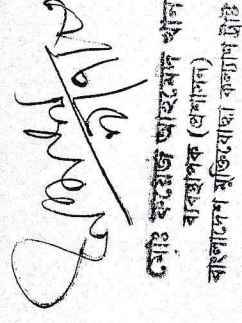 মোঃ ফয়েজ আহমেদ খান
ব্যবস্থাপক (প্রশাসন)
বাংলাদেশ মুক্তিযোদ্ধা কল্যাণ ট্রাস্ট